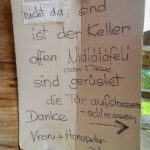 nicht da sind
ist der Keller
offen
oder Käse
sind gerüstet
die Tür aufstossen
Danke + schliessen
Vreni + Hanspeter